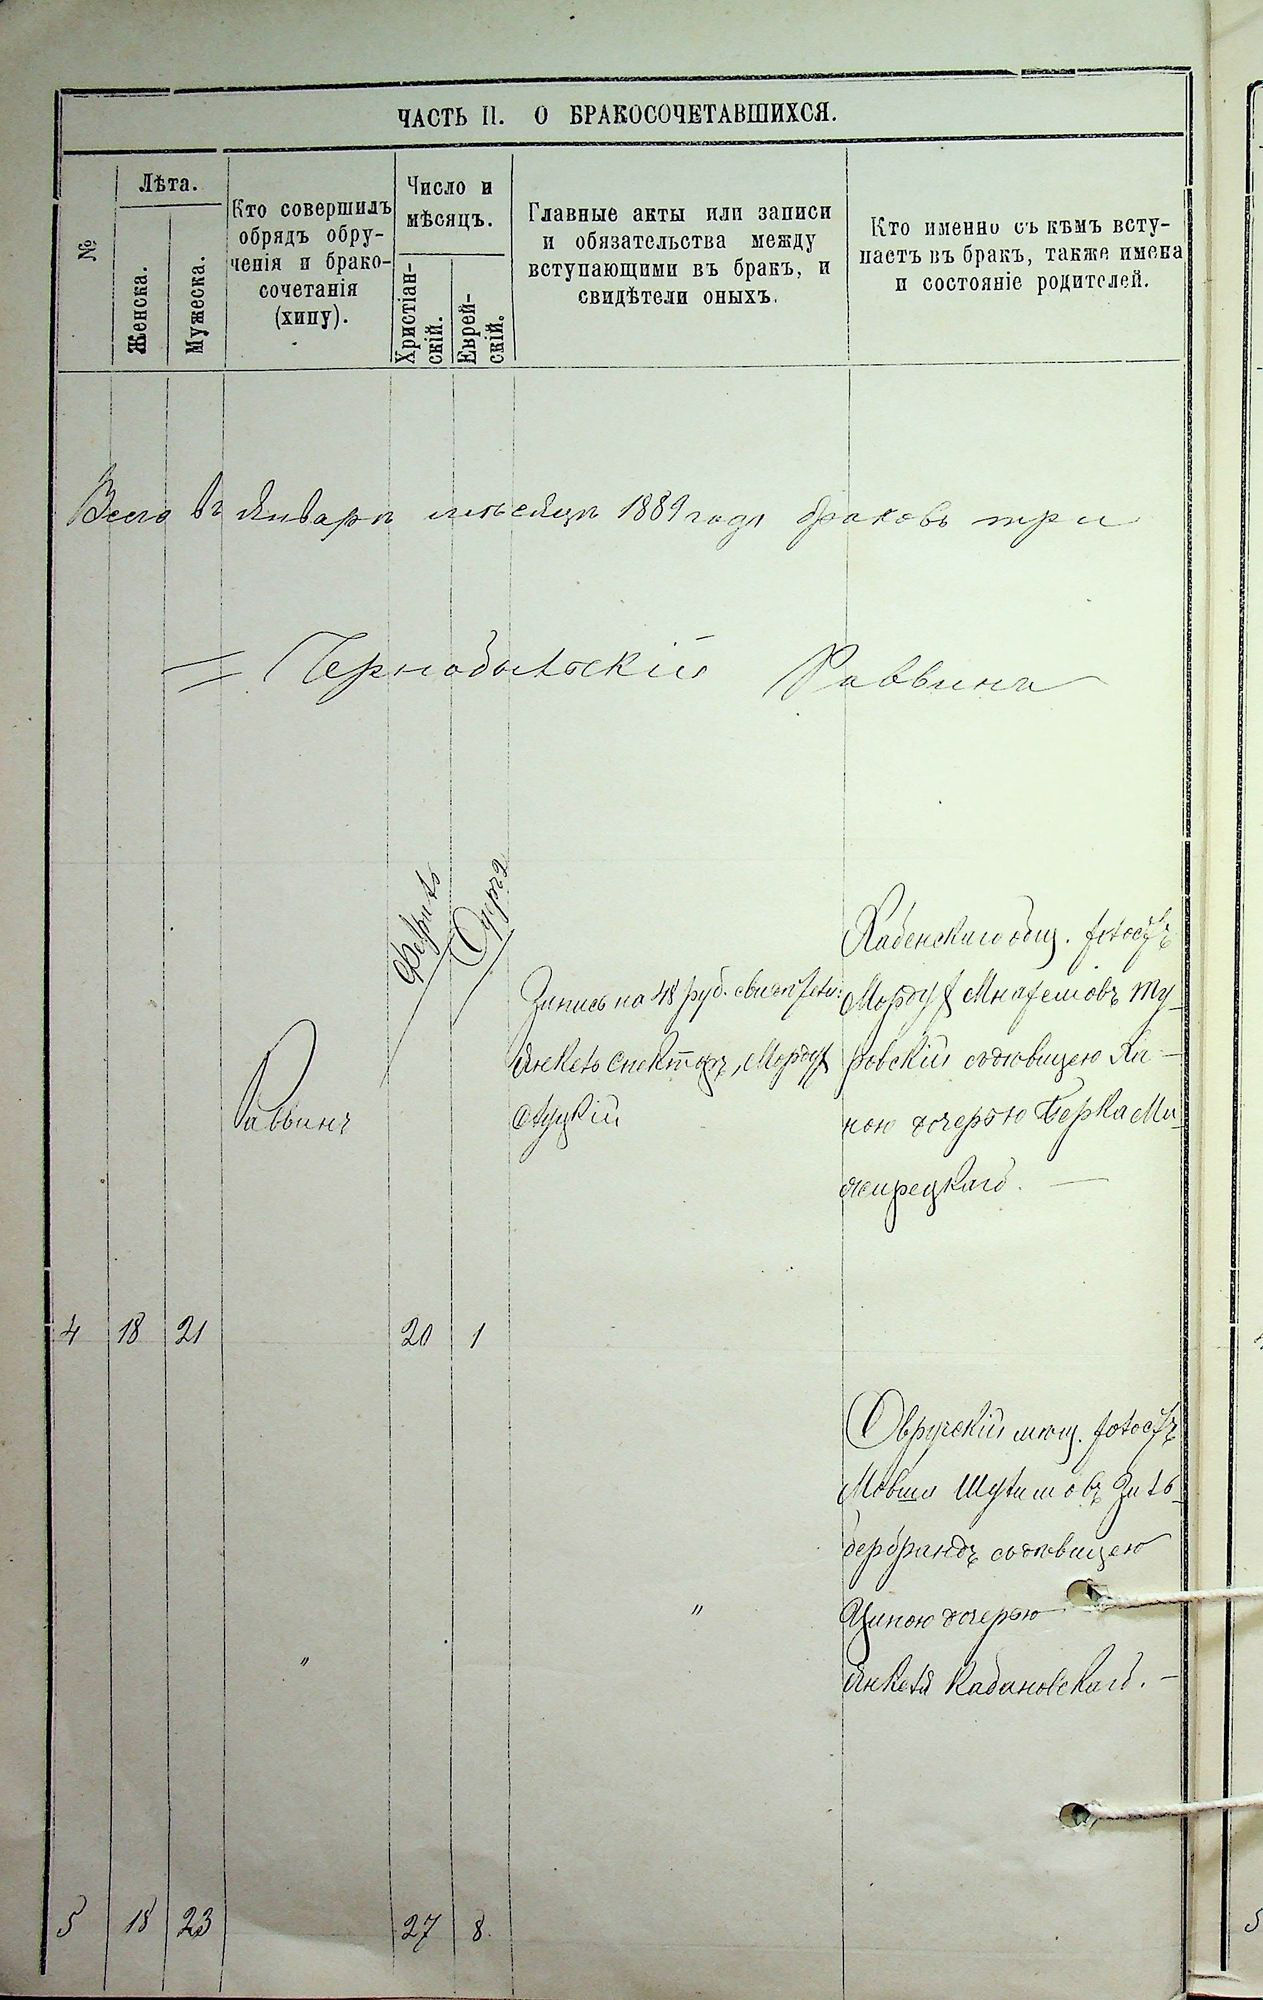 ЧАСТЬ II. О БРАКОСОЧЕТАВШИХСЯ.
№
Лѣта.
Женска.
Мужеска.
Кто совершилъ
обрядъ обру-
ченія и брако-
сочетанія
(хипу).
Число и
мѣсяцъ.
Христіан-
скій.
Еврей-
скій.
Главные акты или записи
и обязательства между
вступающими въ бракъ, и
свидѣтели оныхъ.
Кто именно съ кѣмъ всту-
паетъ въ бракъ, также имена
и состояніе родителей.
Всего въ Январѣ мѣсяцѣ 1889 года браковъ три
Чернобыльскій Раввинъ
Февраль
Раввинъ
Запись на 48 руб. свидѣтели:
Янкель Спекторъ, Мордух
Слуцкій
Хабенскаго общ. холостъ
Мордух Мнахемовъ Ту-
ровскій съ дѣвицею Ха-
ною дочерью Берка Ми-
жирецкаго. —
4 18 21 20 1
Овручскій мѣщ. холостъ
Мовша Шулимовъ Зиль-
бербрандъ съ дѣвицею
Циною дочерью
Янкеля Кабановскаго. —
" "
5 18 23 27 8